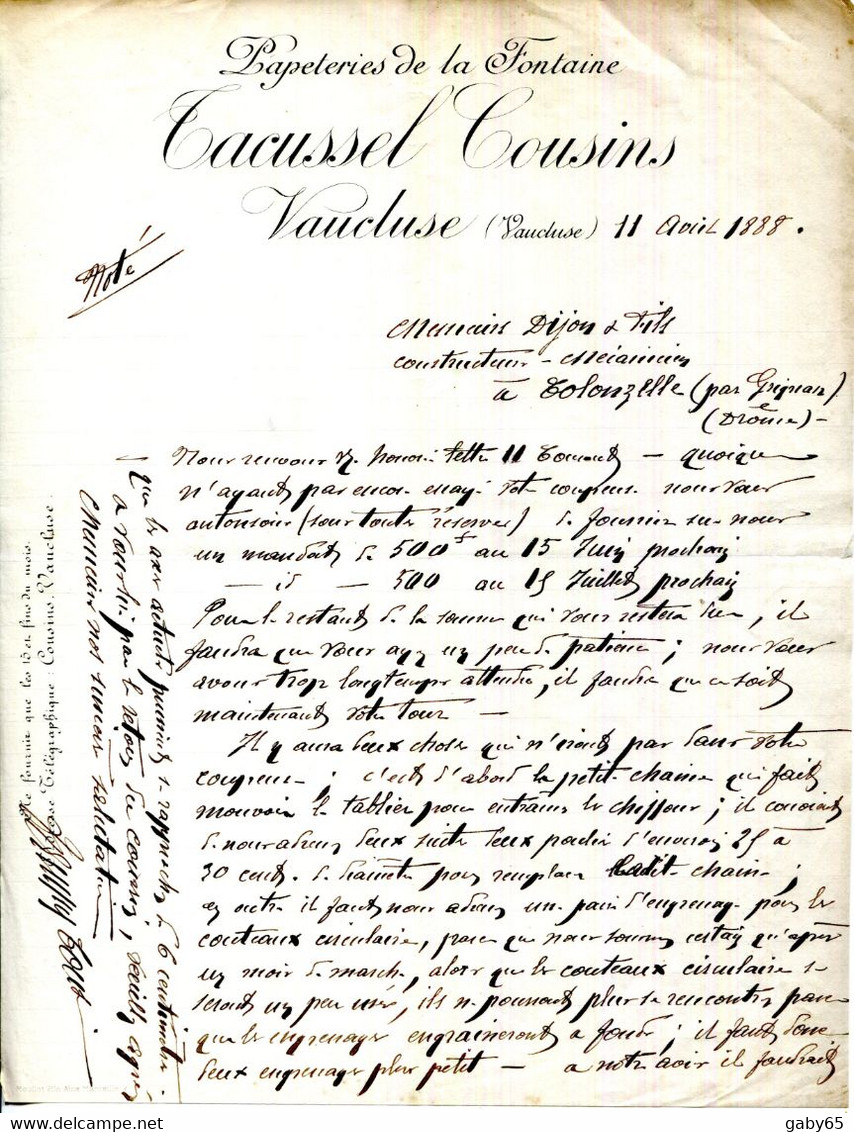 Papeteries de la Fontaine
Tacussel Cousins
Vaucluse (Vaucluse) 11 Avril 1888.
Noté
Messieurs Dijon & Fils
Constructeurs - Mécaniciens
à Colonzelle (par Grignan)
(Drôme) -
Nous recevons v. honorée lettre 11 Courant - quoique
n'ayant pas encore essayé votre coupeuse nous vous
autorisons (sous toutes réserves) de fournir sur nous
un mandat de 500 f au 15 Juin prochain
- id - 500 au 15 Juillet prochain
Pour le restant de la somme qui vous restera due, il
faudra que vous ayez un peu de patience ; nous vous
avons trop longtemps attendu, il faudra que ce soit
maintenant votre tour -
Il y aura deux choses qui n'iront pas dans votre
coupeuse ; c'est d'abord la petite chaine qui fait
mouvoir le tablier pour entrainer les chiffons ; il convient
de nous adresser de suite deux poulies d'environ 25 à
30 cent. de diamètre pour remplacer ladite chaine ;
en outre il faut nous adresser une paire d'engrenages pour les
couteaux circulaires, parce que nous sommes certains qu'après
un mois de marche, alors que les couteaux circulaires
seront un peu usés, ils ne pourront plus se rencontrer parce
que les engrenages engraineront à fond ; il faut donc
deux engrenages plus petits - à notre avis il faudrait
- que les axes actuels puissent se rapprocher de 6 centimètres -
à vous lire par le retour du courrier, veuillez agréer
Messieurs nos sincères salutations
Tacussel Cous.
Ne fournir que les 15 et fins du mois.
Adresse Télégraphique : Cousins, Vaucluse.
gaby65